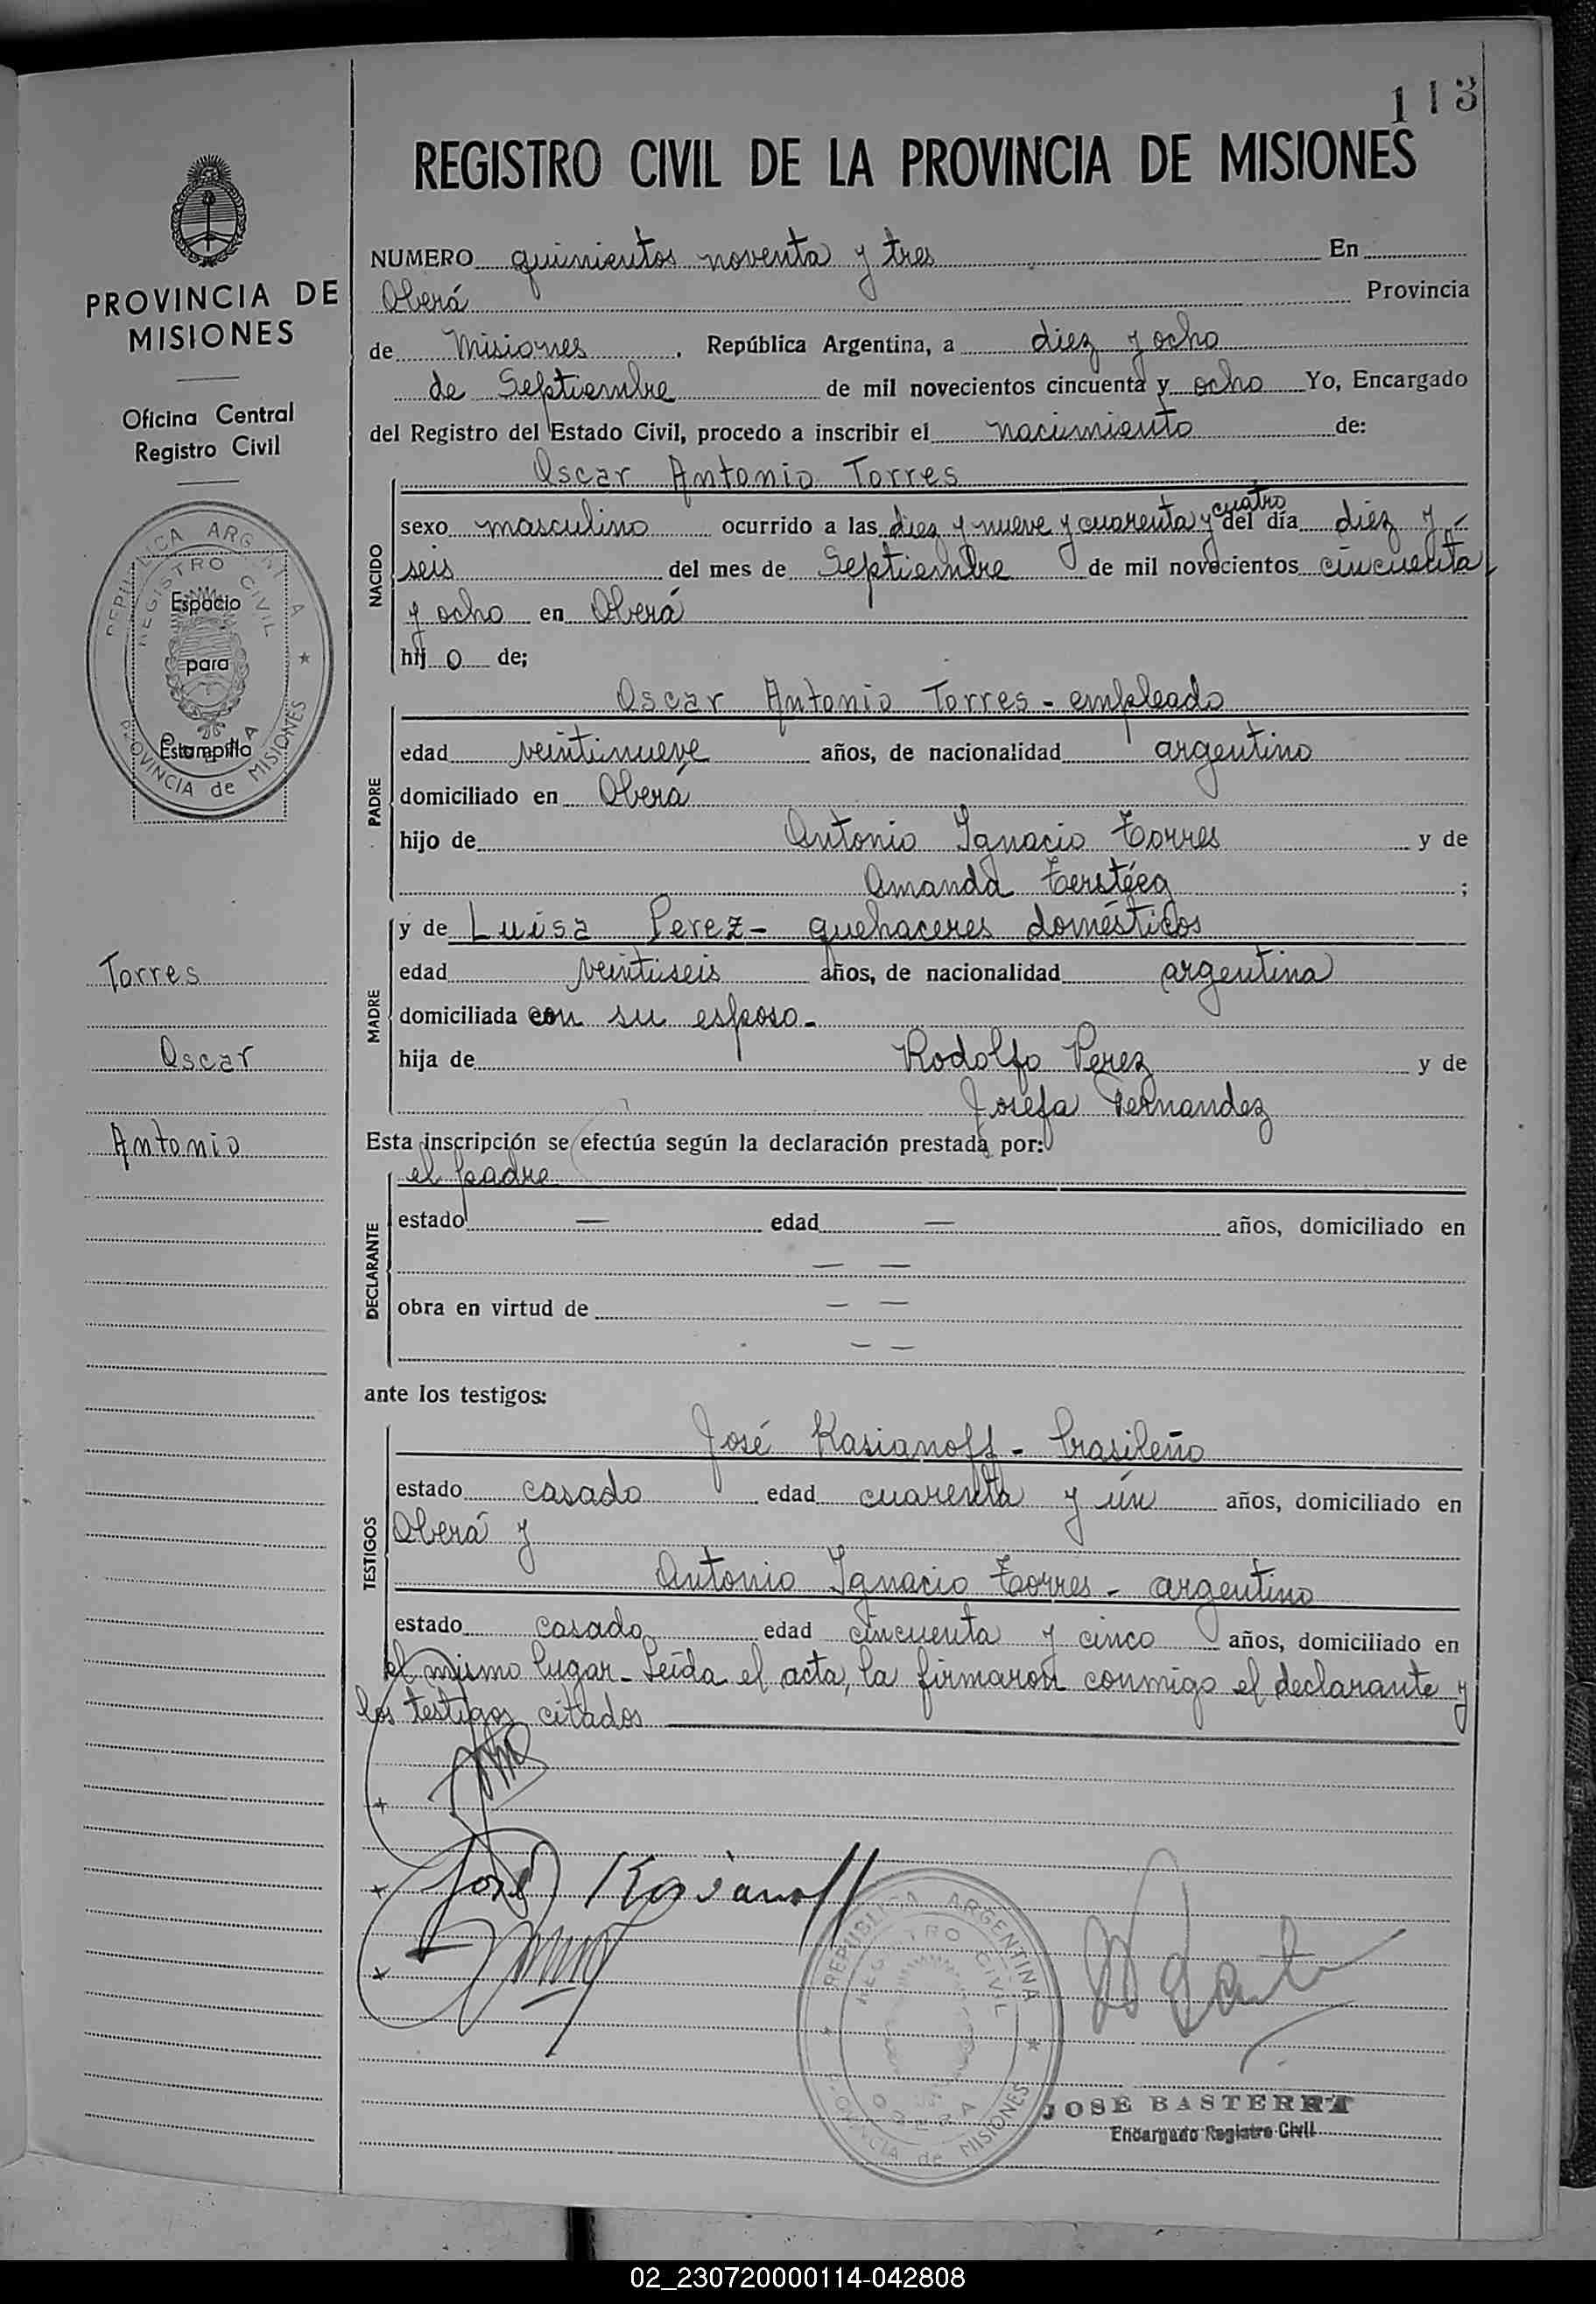 113
REGISTRO CIVIL DE LA PROVINCIA DE MISIONES
PROVINCIA DE
MISIONES
Oficina Central
Registro Civil
REPUBLICA ARGENTINA
REGISTRO CIVIL
Espacio
para
Estampilla
PROVINCIA de MISIONES
Torres
Oscar
Antonio
NUMERO quinientos noventa y tres En
Oberá Provincia
de Misiones . República Argentina, a diez y ocho
de Septiembre de mil novecientos cincuenta y ocho Yo, Encargado
del Registro del Estado Civil, procedo a inscribir el nacimiento de:
Oscar Antonio Torres
NACIDO
sexo masculino ocurrido a las diez y nueve y cuarenta y cuatro del día diez y
seis del mes de Septiembre de mil novecientos cincuenta
y ocho en Oberá
hij o de;
Oscar Antonio Torres - empleado
PADRE
edad veintinueve años, de nacionalidad argentino
domiciliado en Oberá
hijo de Antonio Ignacio Torres y de
Amanda ;
y de Luisa Perez - quehaceres domésticos
MADRE
edad veintiseis años, de nacionalidad argentina
domiciliada con su esposo -
hija de Rodolfo Perez y de
Josefa Fernandez
Esta inscripción se efectúa según la declaración prestada por:
el padre
DECLARANTE
estado — edad — años, domiciliado en
— —
obra en virtud de — —
— —
ante los testigos:
José Kasianoff - brasileño
TESTIGOS
estado casado edad cuarenta y ún años, domiciliado en
Oberá y
Antonio Ignacio Torres - argentino
estado casado edad cincuenta y cinco años, domiciliado en
el mismo lugar - Leída el acta, la firmaron conmigo el declarante y
los testigos citados
José Kasianoff
REPUBLICA ARGENTINA
REGISTRO CIVIL
OBERA
PROVINCIA de MISIONES
JOSÉ BASTERRA
Encargado Registro Civil
02_230720000114-042808